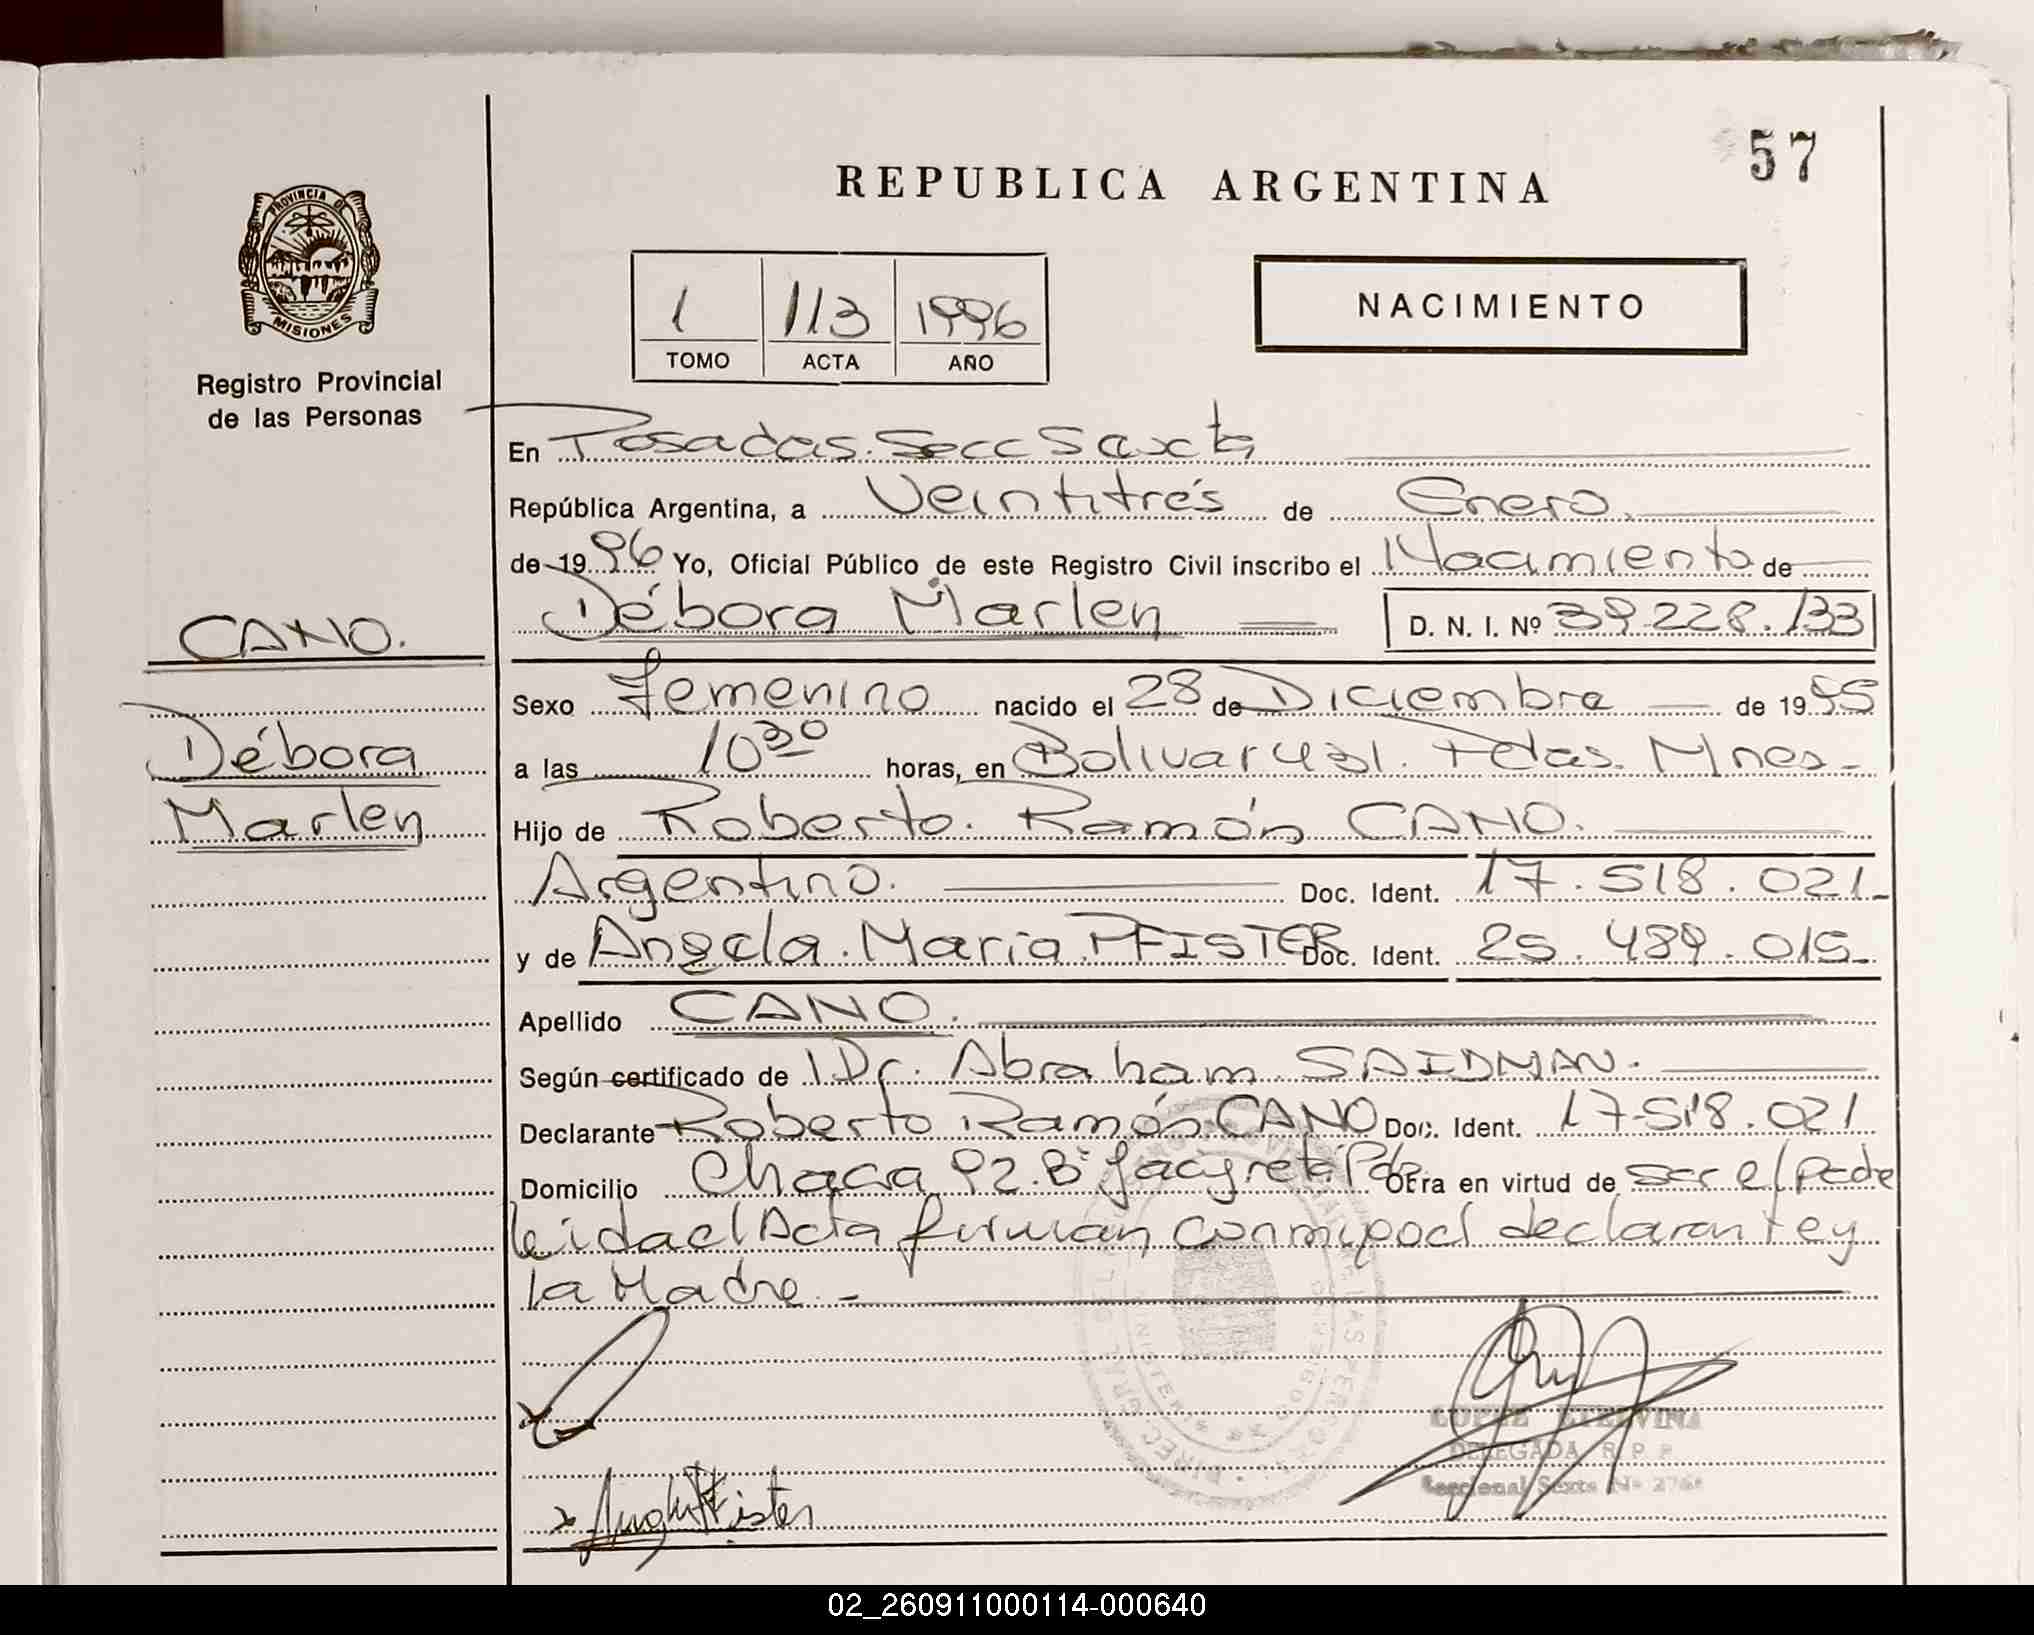 57
REPUBLICA ARGENTINA
PROVINCIA DE
MISIONES
Registro Provincial
de las Personas
1 113 1996
TOMO ACTA AÑO
NACIMIENTO
En Posadas. Secc Sexta
República Argentina, a Veintitrés de Enero.
de 1996 Yo, Oficial Público de este Registro Civil inscribo el Nacimiento de
Débora Marlen D. N. I. Nº 39.228.133
CANO.
Débora
Marlen
Sexo Femenino nacido el 28 de Diciembre de 1995
a las 10 30 horas, en Bolivar 431. Pdas. Mnes.
Hijo de Roberto. Ramón CANO.
Argentino. Doc. Ident. 17.518.021
y de Angela. Maria PFISTER Doc. Ident. 25.489.015
Apellido CANO.
Según certificado de Dr. Abraham SAIDMAN.
Declarante Roberto Ramón CANO Doc. Ident. 17.518.021
Domicilio Chacra 92. Bº Yacyretá Pdas Obra en virtud de ser el padre
leida el Acta firman conmigo el declarante y
la Madre. -
DELEGADA R. P. P.
Seccional Sexta Nº
02_260911000114-000640